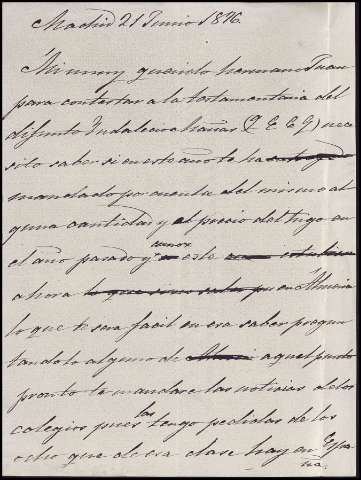 Madrid 21 Junio 1896.
Mi muy querido hermano Juan
para contestar a la testamentaria del
difunto Indalecio Mañas (Q E E G) nece
sito saber si en este año te ha
mandado por cuenta del mismo al
guna cantidad y el precio del trigo en
el año pasado y en este
ahora en Almeria
lo que te sera facil en esa saber pregun
tandolo alguno de aquel punto
pronto te mandare las noticias de los
colegios pues las tengo pedidas de los
ocho que de esa clase hay en Espa
ña.